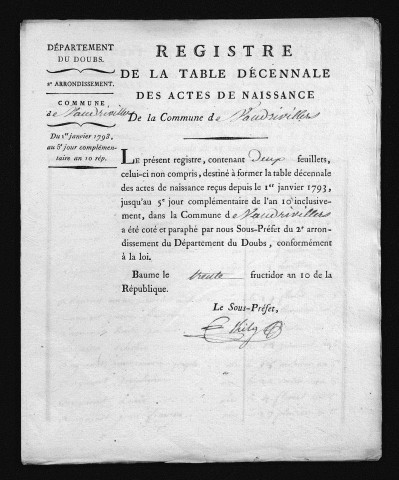 DÉPARTEMENT
DU DOUBS.
2e ARRONDISSEMENT.
COMMUNE
de Vaudrivillers
Du 1er janvier 1793,
au 5e jour complémen-
taire an 10 rép.
REGISTRE
DE LA TABLE DÉCENNALE
DES ACTES DE NAISSANCE
De la Commune de Vaudrivillers
LE présent registre, contenant deux feuillets,
celui-ci non compris, destiné à former la table décennale
des actes de naissance reçus depuis le 1er janvier 1793,
jusqu'au 5e jour complémentaire de l'an 10 inclusive-
ment, dans la Commune de Vaudrivillers
a été coté et paraphé par nous Sous-Préfet du 2e arron-
dissement du Département du Doubs, conformément
à la loi.
Baume le trente fructidor an 10 de la
République.
Le Sous-Préfet,